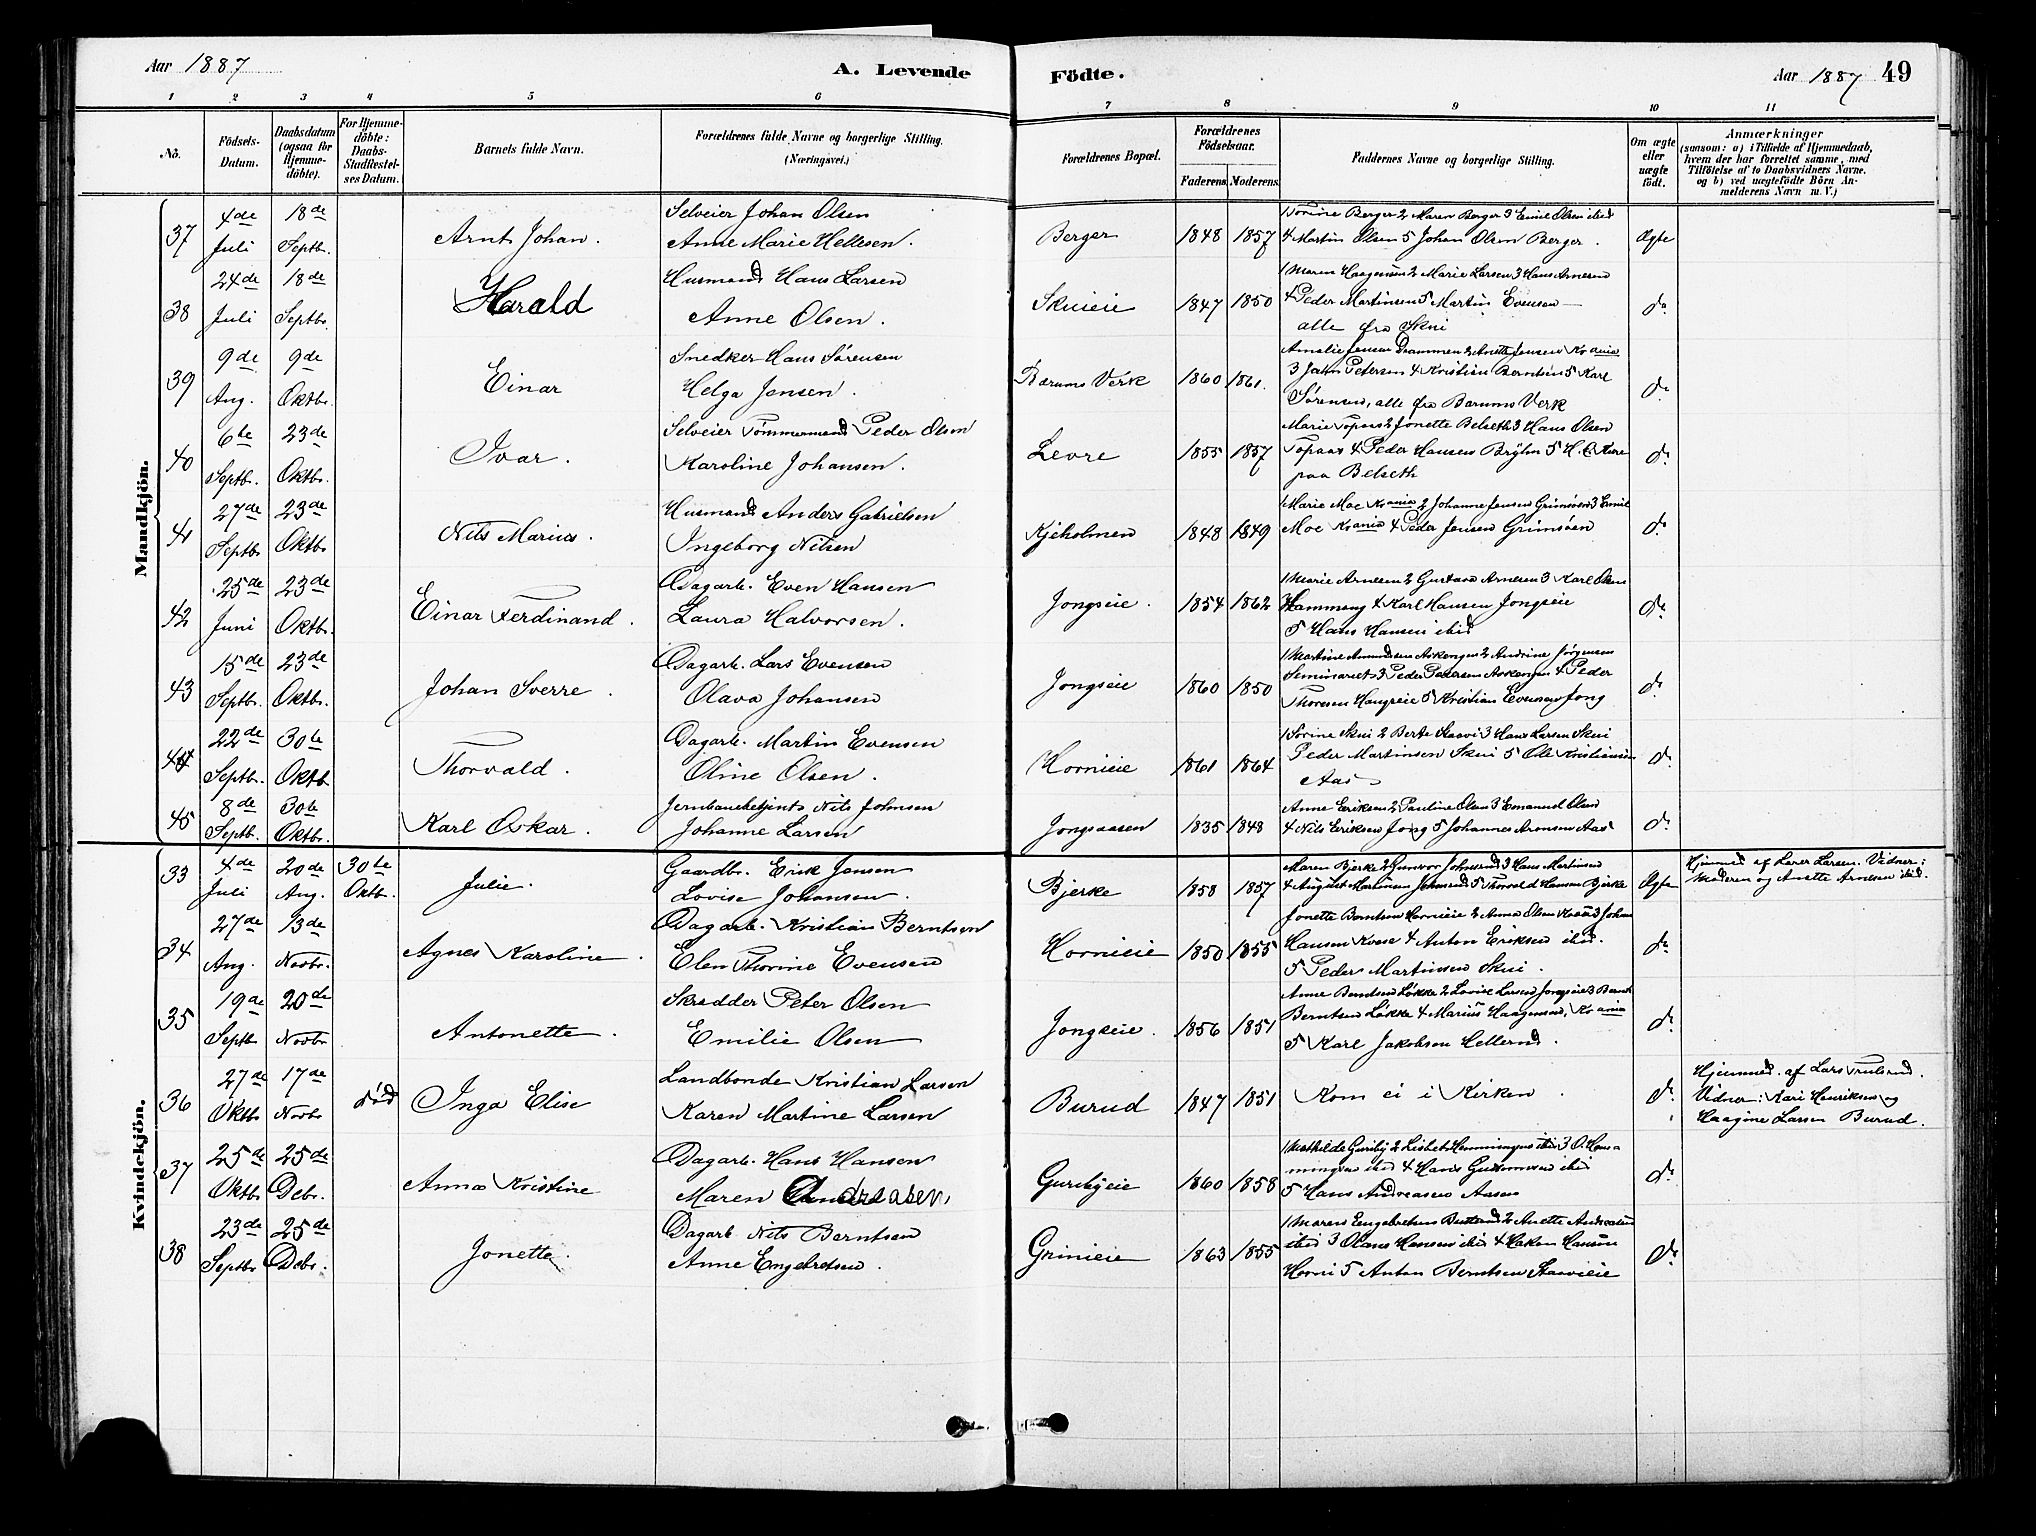 Aar 1887
A. Levende
Födte.
Aar 1887
49
1 2 3 4 5 6 7 8 9 10 11
No.
Födsels-Datum.
Daabsdatum (ogsaa for Hjemme-döbte).
For Hjemme-döbte: Daabs-Stadfæstel-ses Datum.
Barnets fulde Navn.
Forældrenes fulde Navne og borgerlige Stilling. (Næringsvei.)
Forældrenes Bopæl.
Forældrenes Födselsaar.
Faderens. Moderens.
Faddernes Navne og borgerlige Stilling.
Om ægte eller uægte födt.
Anmærkninger
(saasom: a) i Tilfælde af Hjemmedaab,
hvem der har forrettet samme, med
Tilföielse af to Daabsvidners Navne.
og b) ved uægtefödte Börn An-
melderens Navn m. V.)
Mandkjön.
37 4de Juli 18de Septbr. Arnt Johan.
Selveier Johan Olsen
Anne Marie Hellesen.
Berger 1848 1857
1 Torine Berger 2 Maren Berger 3 Emil Olsen ibid
4 Martin Olsen 5 Johan Olsen Berger.
Ægte
38 24de Juli 18de Septbr. Harald
Husmand Hans Larsen
Anne Olsen.
Skuieie 1847 1850
1 Maren Haagensen 2 Marie Larsen 3 Hans Arnesen
4 Peder Martinsen 5 Martin Evensen
alle fra Skui
do
39 9de Aug. 9de Oktbr. Einar
Snedker Hans Sörensen
Helga Jensen.
Bærums Verk 1860 1861.
Amalie Jensen Drammen 2 Anette Jensen Krania
3 John Petersen 4 Kristian Berntsen 5 Karl
Sörensen, alle fra Bærums Verk
do
40 6te Septbr. 23de Oktbr. Ivar.
Selveier Tömmermand Peder Olsen
Karoline Johansen.
Levre 1855 1857
Marie Topaas 2 Jonette Belseth 3 Hans Olsen
Topaas 4 Peder Hansen 5 H. C.
paa Belseth
do
41 27de Septbr 23de Oktbr Nils Marius.
Husmand Anders Gabrielsen
Ingeborg Nilsen
Kjeholmen 1848 1849
Marie Moe Krania 2 Johanne Jensen Grimsöen 3 Emil
Moe Krania 4 Peder Jensen Grimsöen
do
42 25de Juni 23de Oktbr. Einar Ferdinand.
Dagarb. Even Hansen
Laura Halvorsen.
Jongseie. 1854 1862
1 Marie Arnesen 2 Gustava Arnesen 3 Karl Olsen
Hammeng 4 Karl Hansen Jongseie
5 Hans Hansen ibid
do
43 15de Septbr. 23de Oktbr. Johan Sverre.
Dagarb. Lars Evensen
Olava Johansen
Jongseie 1860 1850
1 Martine Amundsen Askengen 2 Andrine Jörgensen
Seminariet 3 Peder Pedersen Askengen 4 Peder
Thoresen Haugseie 5 Kristian Evensen Jong
do
44 22de Septbr. 30te Oktb Thorvald.
Dagarb. Martin Evensen
Oline Olsen.
Hornieie 1861 1864
1 Sorine Skui 2 Berte Staavi 3 Hans Larsen Skui
Peder Martinsen Skui 5 Ole Kristiansen
Aas
do
45 8de Septbr. 30te Oktbr. Karl Oskar.
Jernbanebetjent Nils Johnsen
Johanne Larsen
Jongsaasen 1835 1848
Anne Eriksen 2 Pauline Olsen 3 Emanuel Olsen
4 Nils Eriksen Jong 5 Johannes Aronsen Aas
do
Kvindekjön.
33 4de Juli 20de Aug. 30te Oktbr. Julie.
Gaardbr. Erik Jensen
Lovise Johansen.
Bjerke 1858 1857
Maren Bjerke 2 Gunvor Johnsrud 3 Hans Martinsen
4 August Martinsen Johnsrud 5 Thorvald Hansen Bjerke
Ægte
Hjemmed af Lærer Larsen. Vidner:
Moderen og Anette Arnesen ibid.
34 27de Aug. 13de Novbr. Agnes Karoline.
Dagarb. Kristian Berntsen
Elen Thorine Evensen
Hornieie 1850 1855
Jonette Berntsen Hornieie 2 Anna Olsen 3 Johan
Hansen 4 Anton Eriksen ibid.
5 Peder Martinsen Skui.
do
35 19de Septb 20de Novbr Antonette.
Skrædder Peter Olsen
Emilie Olsen
Jongseie. 1856 1851
Anne Berntsen Lökke 2 Lovise Larsen Jongseie 3 Bernt
Berntsen Lökke 4 Marius Haagensen, Krania
5 Karl Jakobsen Hellerud.
do
36 27de Oktbr 17de Novbr död Inga Elise
Landbonde Kristian Larsen
Karen Martine Larsen
Burud 1847 1851
Kom ei i Kirken.
do
Hjemmed. af Lars Trulsrud.
Vidner: Kari Henriksen og
Haagine Larsen Burud.
37 25de Oktbr 25de Debr. Anna Kristine
Dagarb. Hans Hansen
Maren Andreasen,
Guribyeie 1860 1858
1 Mathilde Guriby 2 Lisbet Henningsen ibid 3 O. Henn-
ingsen ibid 4 Hans Gudmunsen ibid
5 Hans Andreasen Aasen
do
38 23de Septbr 25de Debr. Jonette.
Dagarb Nils Berntsen
Anne Engebretsen.
Grinieie 1863 1855
1 Maren Engebretsen Burud 2 Anette Andreasen
ibid 3 Olaus Hansen ibid 4 Hakon Hansen
Horni 5 Anton Berntsen Staavieie
do